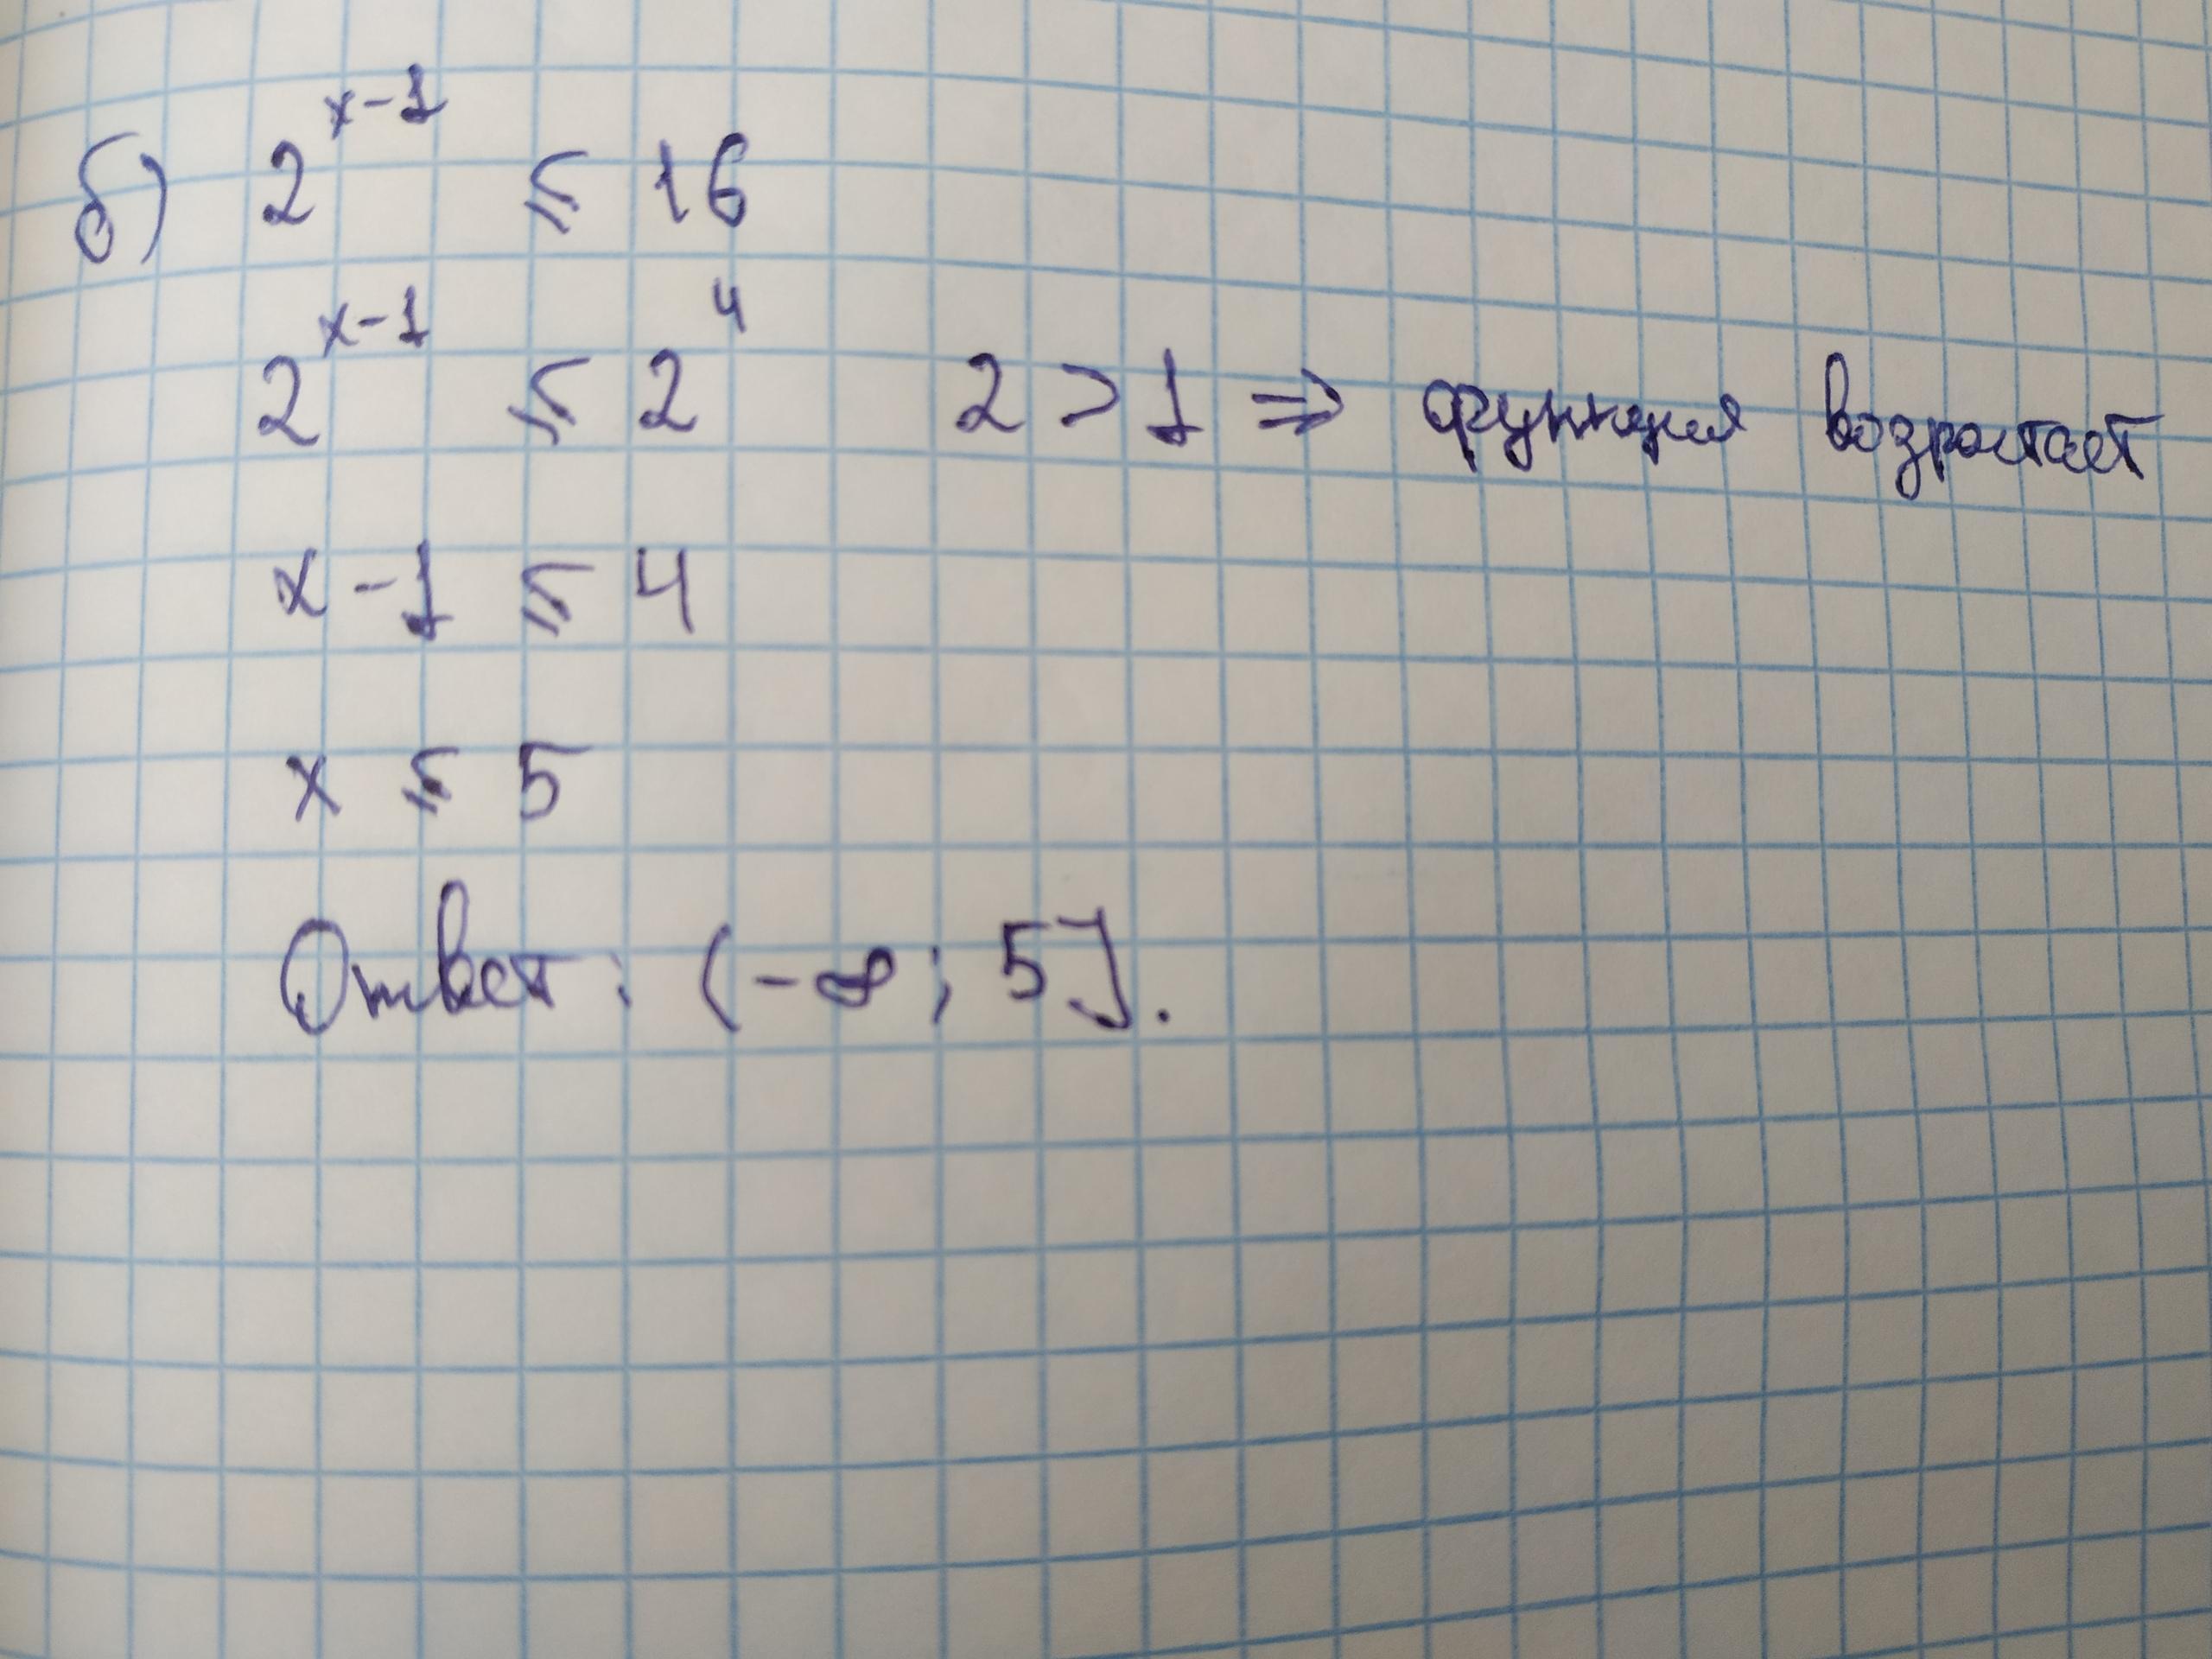 б) 2^{x-1} ≤ 16
2^{x-1} ≤ 2^4 2 > 1 ⇒ функция возрастает
x - 1 ≤ 4
x ≤ 5
Ответ: (-∞; 5].